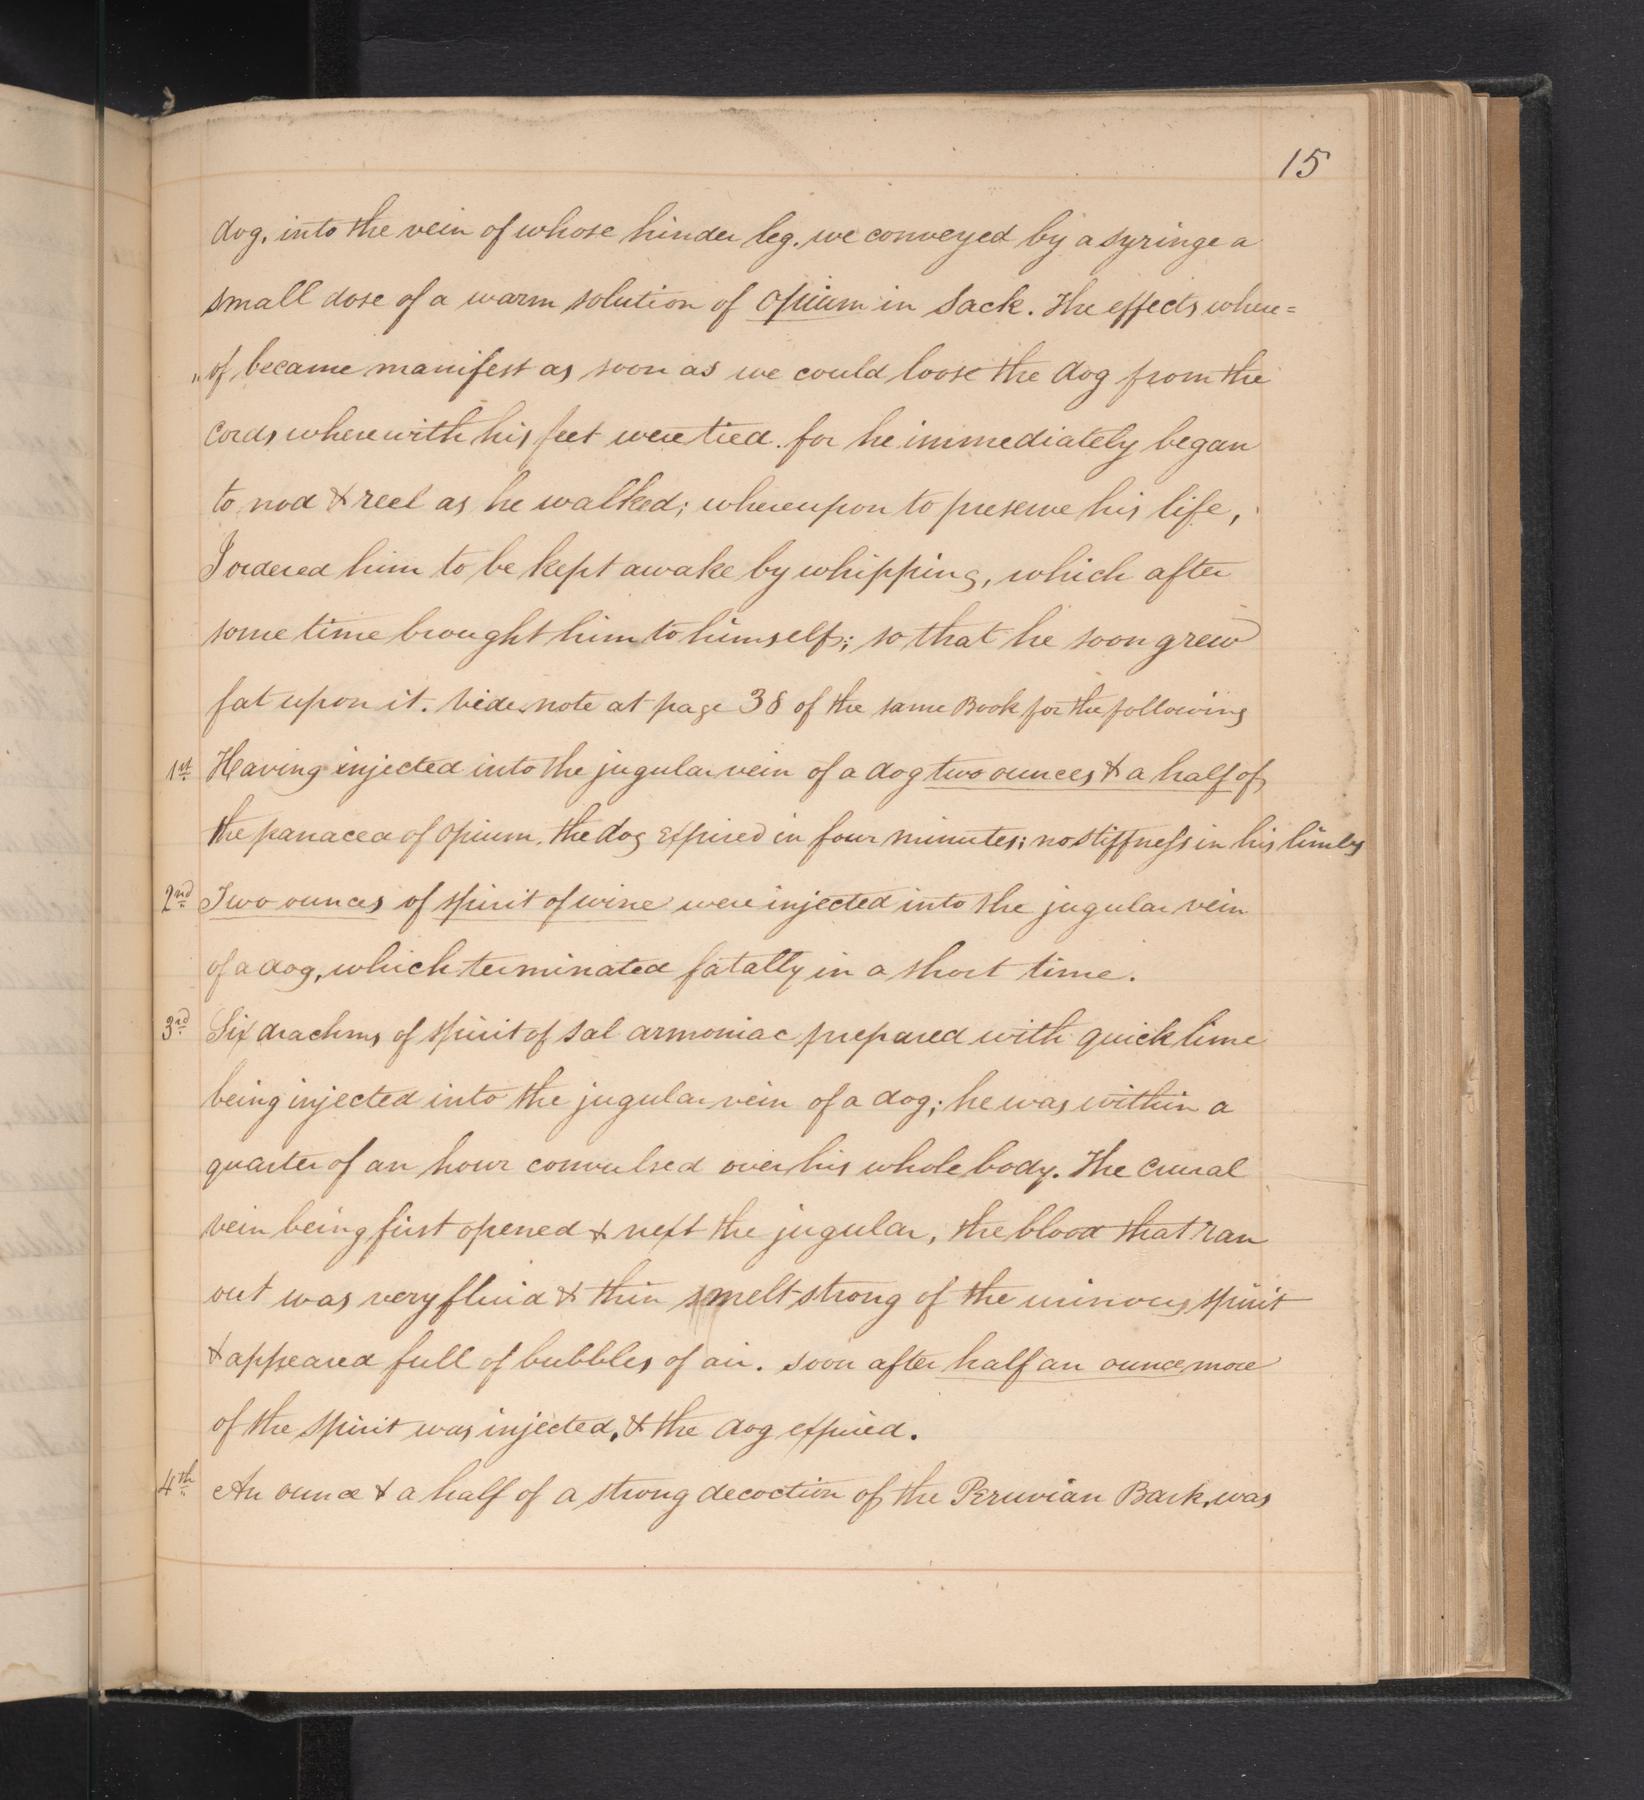 15
dog, into the vein of whose hinder leg. we conveyed by a syringe a
small dose of a warm solution of opium in Sack. The effects where=
"of became manifest as soon as we could loose the dog from the
cords wherewith his feet were tied. for he immediately began
to nod & reel as he walked; whereupon to preserve his life,
I ordered him to be kept awake by whipping, which after
some time brought him to himself; so that he soon grew
fat upon it. Vide note at page 38 of the same Book for the following
1st Having injected into the jugular vein of a dog two ounces & a half of
the panacea of opium. the dog expired in four minutes; no stiffness in his limbs
2nd Two ounces of spirit of wine were injected into the jugular vein
of a dog, which terminated fatally in a short time.
3rd Six drachms of spirit of sal armoniac prepared with quick lime
being injected into the jugular vein of a dog; he was within a
quarter of an hour convulsed over his whole body. The crural
vein being first opened & next the jugular, the blood that ran
out was very fluid & thin smelt strong of the urinous spirit
& appeared full of bubbles of air. soon after half an ounce more
of the spirit was injected, & the dog expired.
4th An ounce & a half of a strong decoction of the Peruvian Bark, was